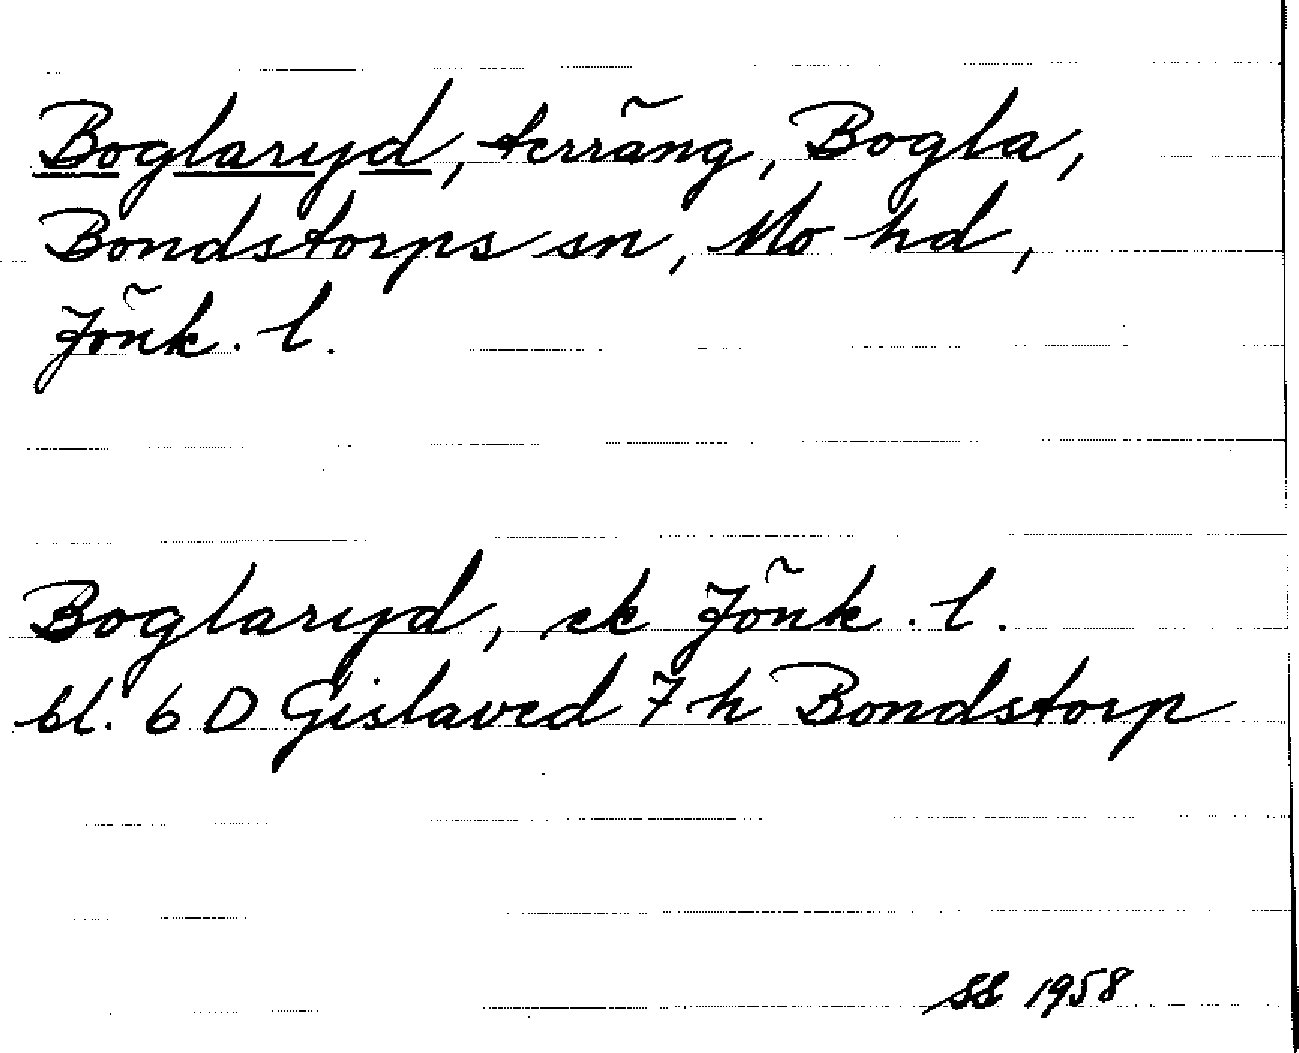 Boglaryd, terräng, Bogla,
Bondstorps sn, Mo hd,
Jönk. l.
Boglaryd, ek Jönk. l.
bl. 6 D Gislaved 7 h Bondstorp
SS 1958